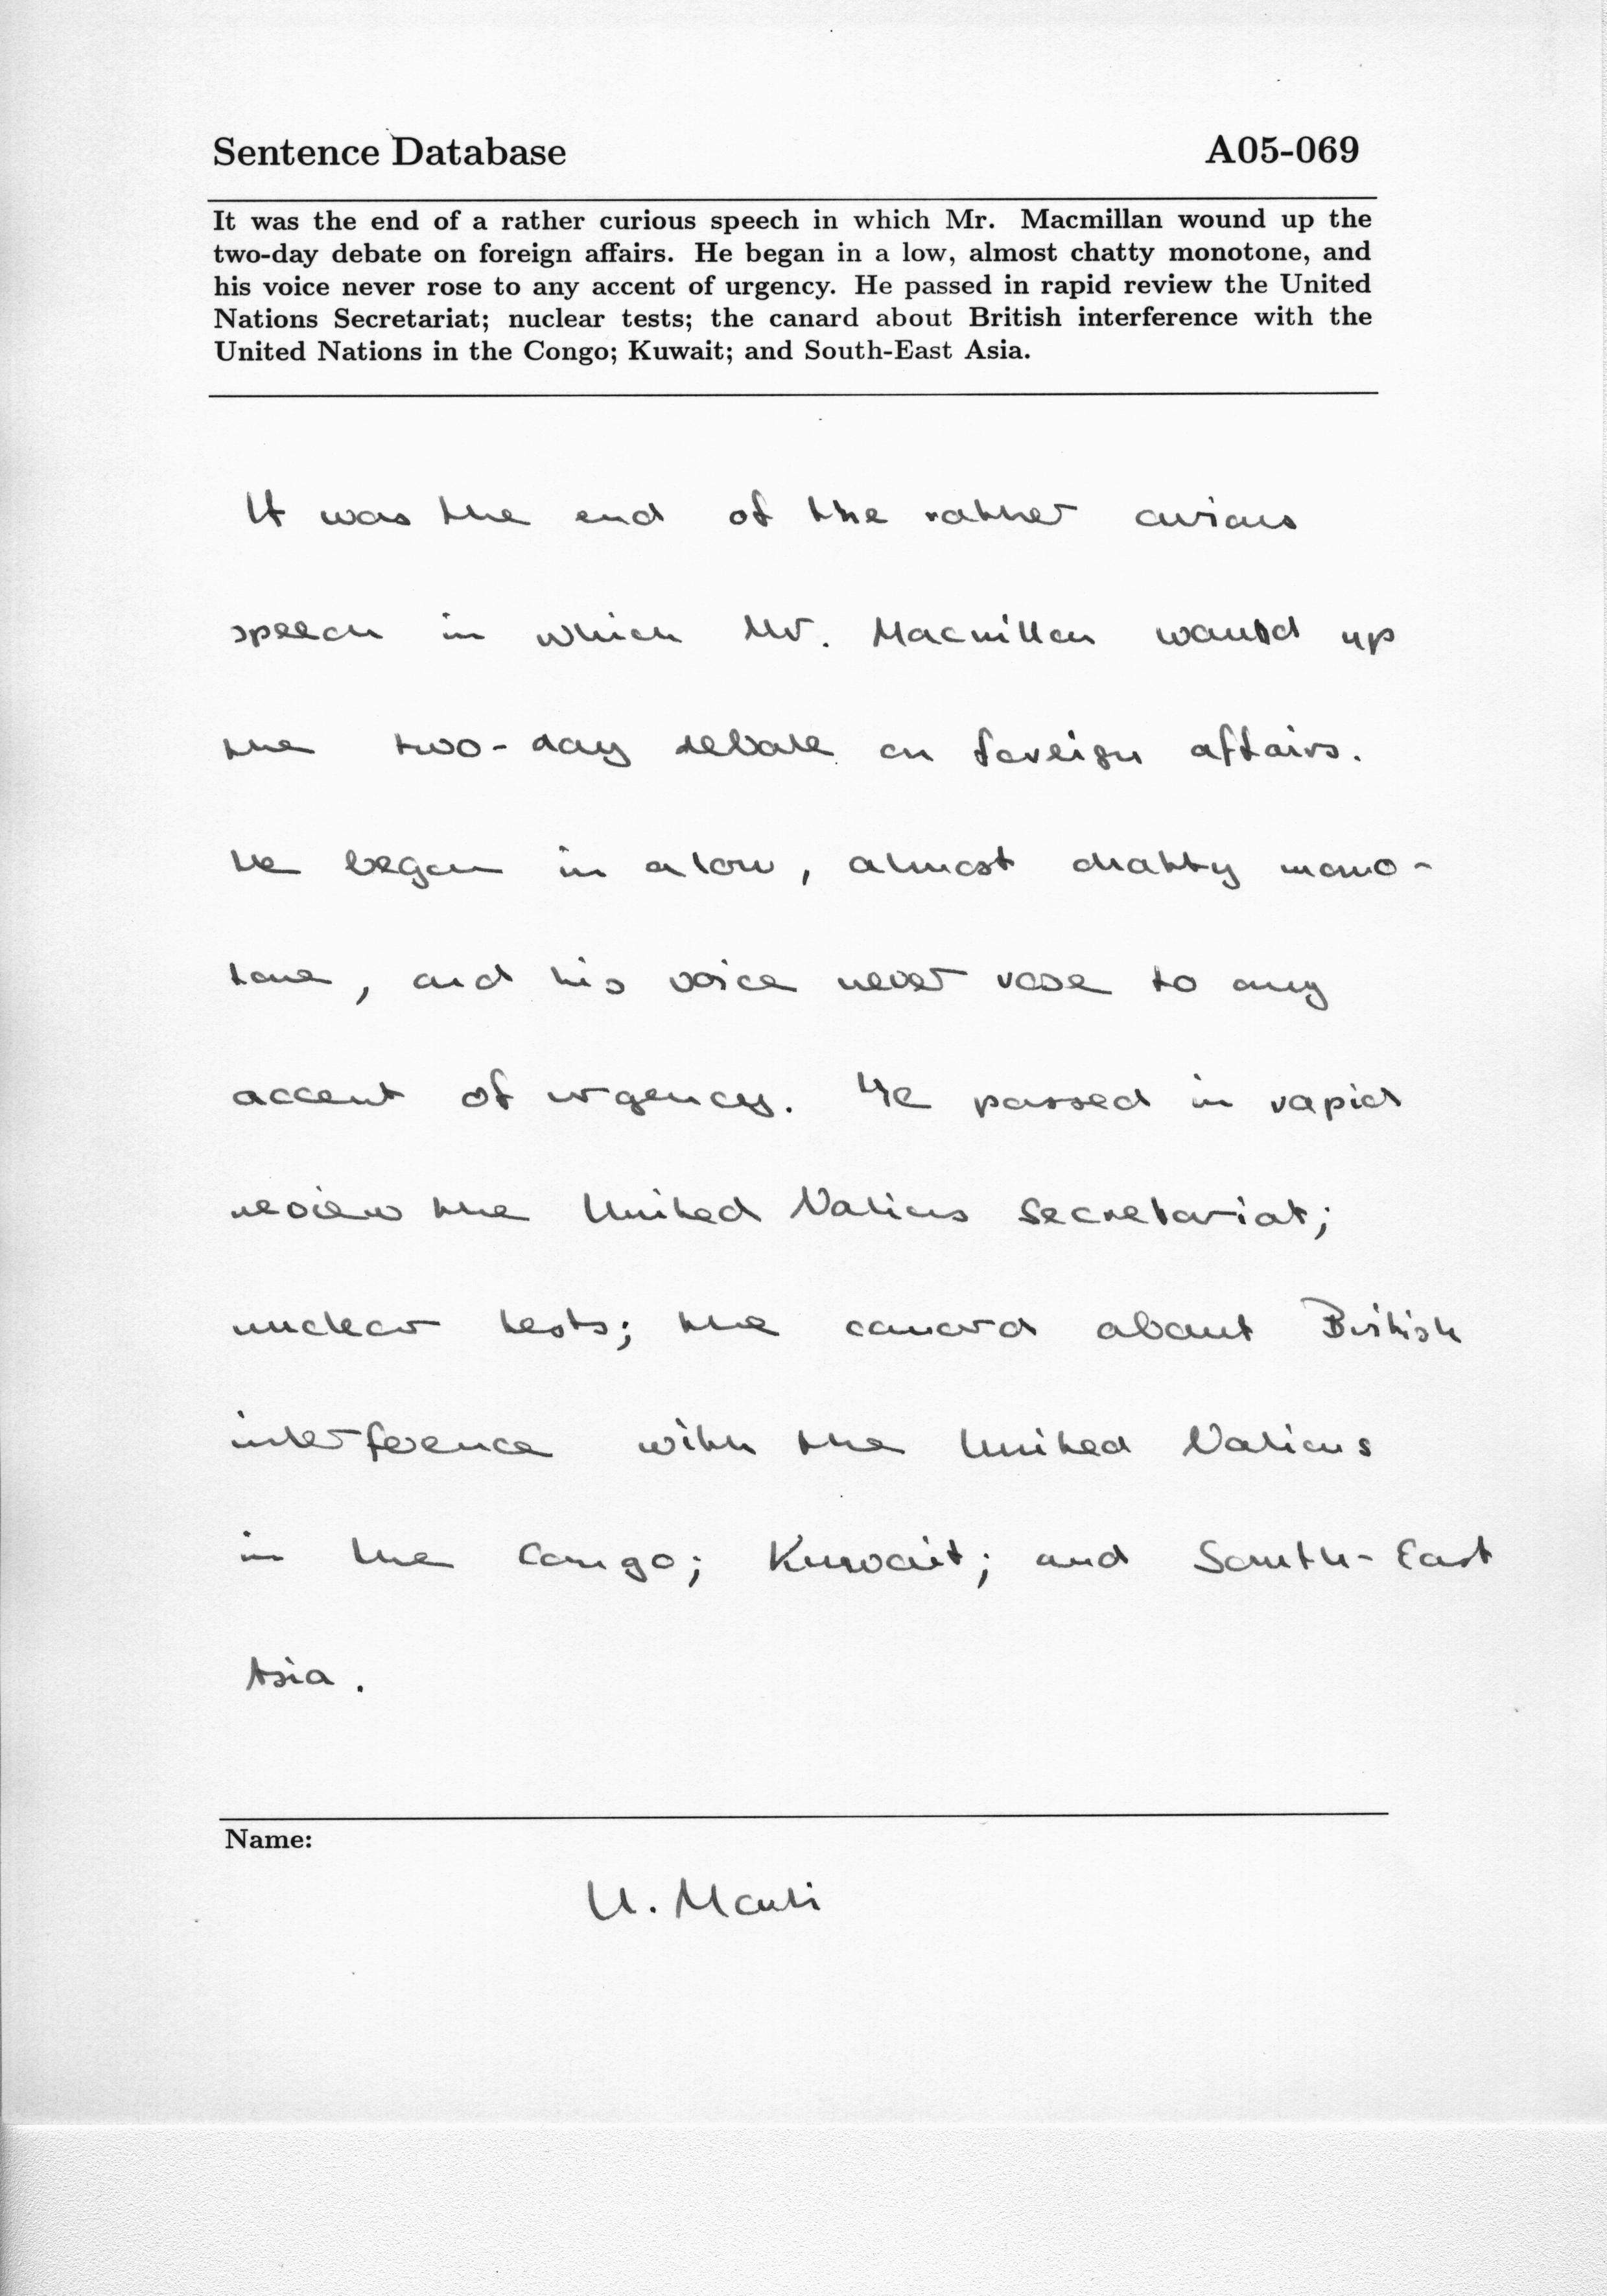 Sentence Database A05-069
It was the end of a rather curious speech in which Mr. Macmillan wound up the
two-day debate on foreign affairs. He began in a low, almost chatty monotone, and
his voice never rose to any accent of urgency. He passed in rapid review the United
Nations Secretariat; nuclear tests; the canard about British interference with the
United Nations in the Congo; Kuwait; and South-East Asia.
It was the end of the rather curious
speech in which Mr. Macmillan wound up
the two-day debate on foreign affairs.
He began in a low, almost chatty mono-
tone, and his voice never rose to any
accent of urgency. He passed in rapid
review the United Nations Secretariat;
nuclear tests; the canard about British
interference with the United Nations
in the Congo; Kuwait; and South-East
Asia.
Name:
U. Marti